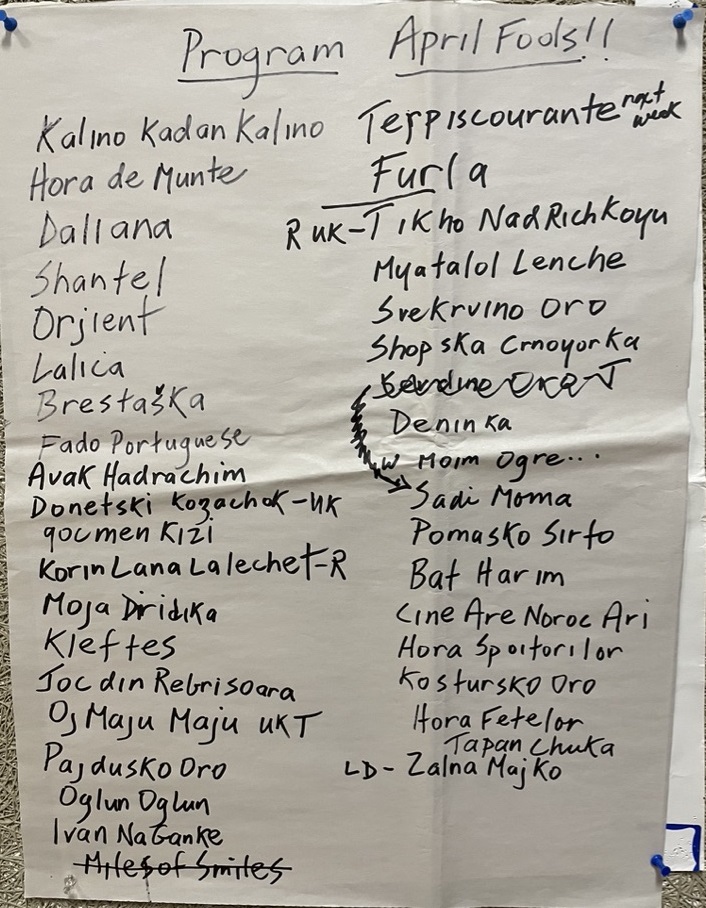 Program April Fools!!
Kalino Kadan Kalino
Hora de Munte
Dallana
Shantel
Orjient
Lalica
Brestaška
Fado Portuguese
Avak Hadrachim
Donetski Kozachok-UK
gocmen Kizi
Korin Lana Lalechet-R
Moja Diridika
Kleftes
Joc din Rebrisoara
Oj Maju Maju UKT
Pajdusko Oro
Oglun Oglun
Ivan Naganke
Miles of Smiles
Terpiscourante next week
Furla
R UK-Tikho Nad Richkoyu
Myatalol Lenche
Svekrvino Oro
Shopska Crnoyorka
Deninka
W Moim Ogre...
Sadi Moma
Pomasko Sirto
Bat Harim
Cine Are Noroc Ari
Hora Spoitorilor
Kostursko Oro
Hora Fetelor
Tapan Chuka
LD- Zalna Majko